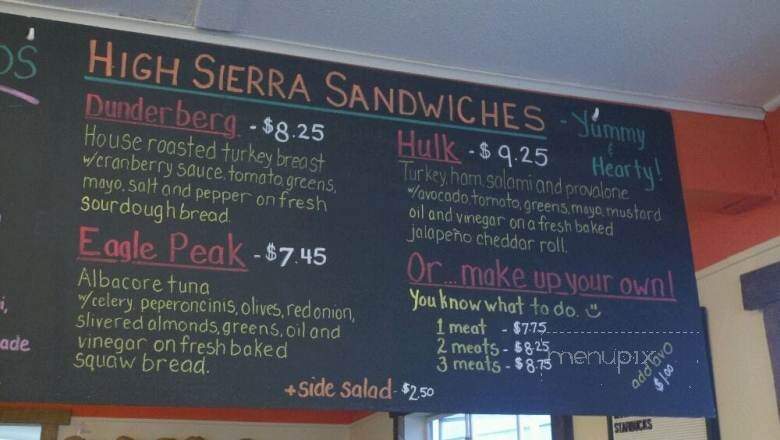 HIGH SIERRA SANDWICHES
- Yummy
&
Hearty!
Dunderberg - $8.25
House roasted turkey breast
w/cranberry sauce, tomato, greens,
mayo, salt and pepper on fresh
sourdough bread.
Eagle Peak - $7.45
Albacore tuna
w/celery, peperoncinis, olives, red onion,
slivered almonds, greens, oil and
vinegar on fresh baked
squaw bread.
Hulk - $9.25
Turkey, ham, salami and provalone
w/avocado, tomato, greens, mayo, mustard
oil and vinegar on a fresh baked
jalapeño cheddar roll.
Or...make up your own!
You know what to do.
1 meat - $7.75
2 meats - $8.25
3 meats - $8.75
add avo
$1.00
+side salad - $2.50
ade
menupix
STARBUCKS